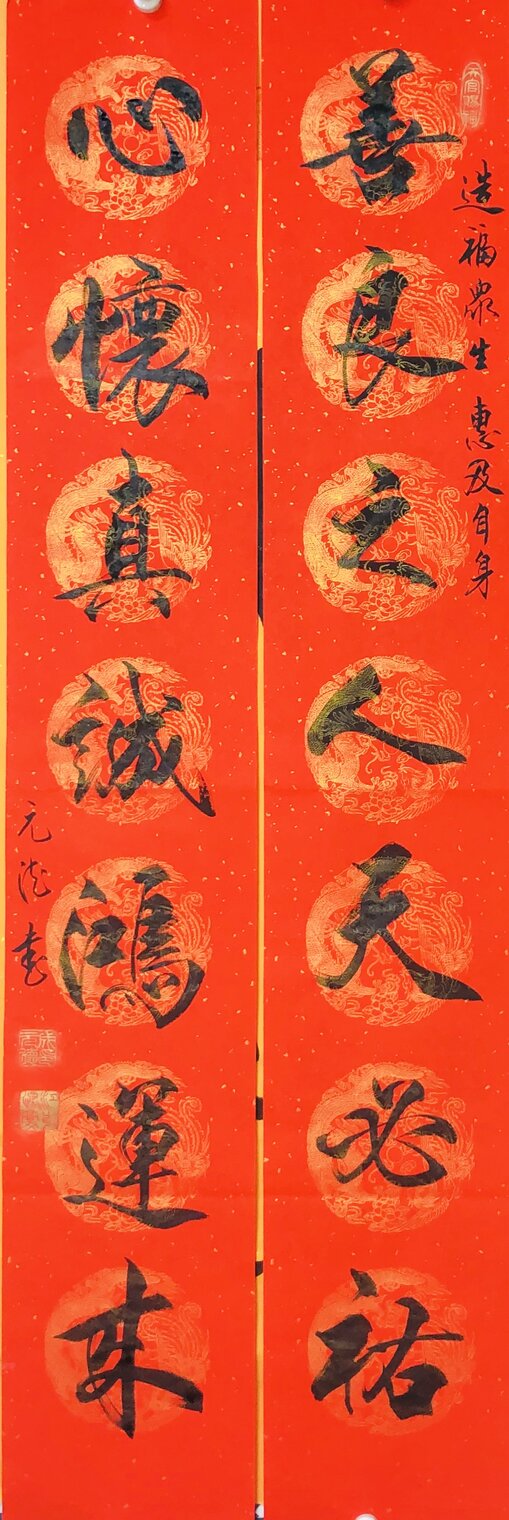 造福眾生 惠及自身
善良之人天必祐
心懷真誠鴻運來
元法書